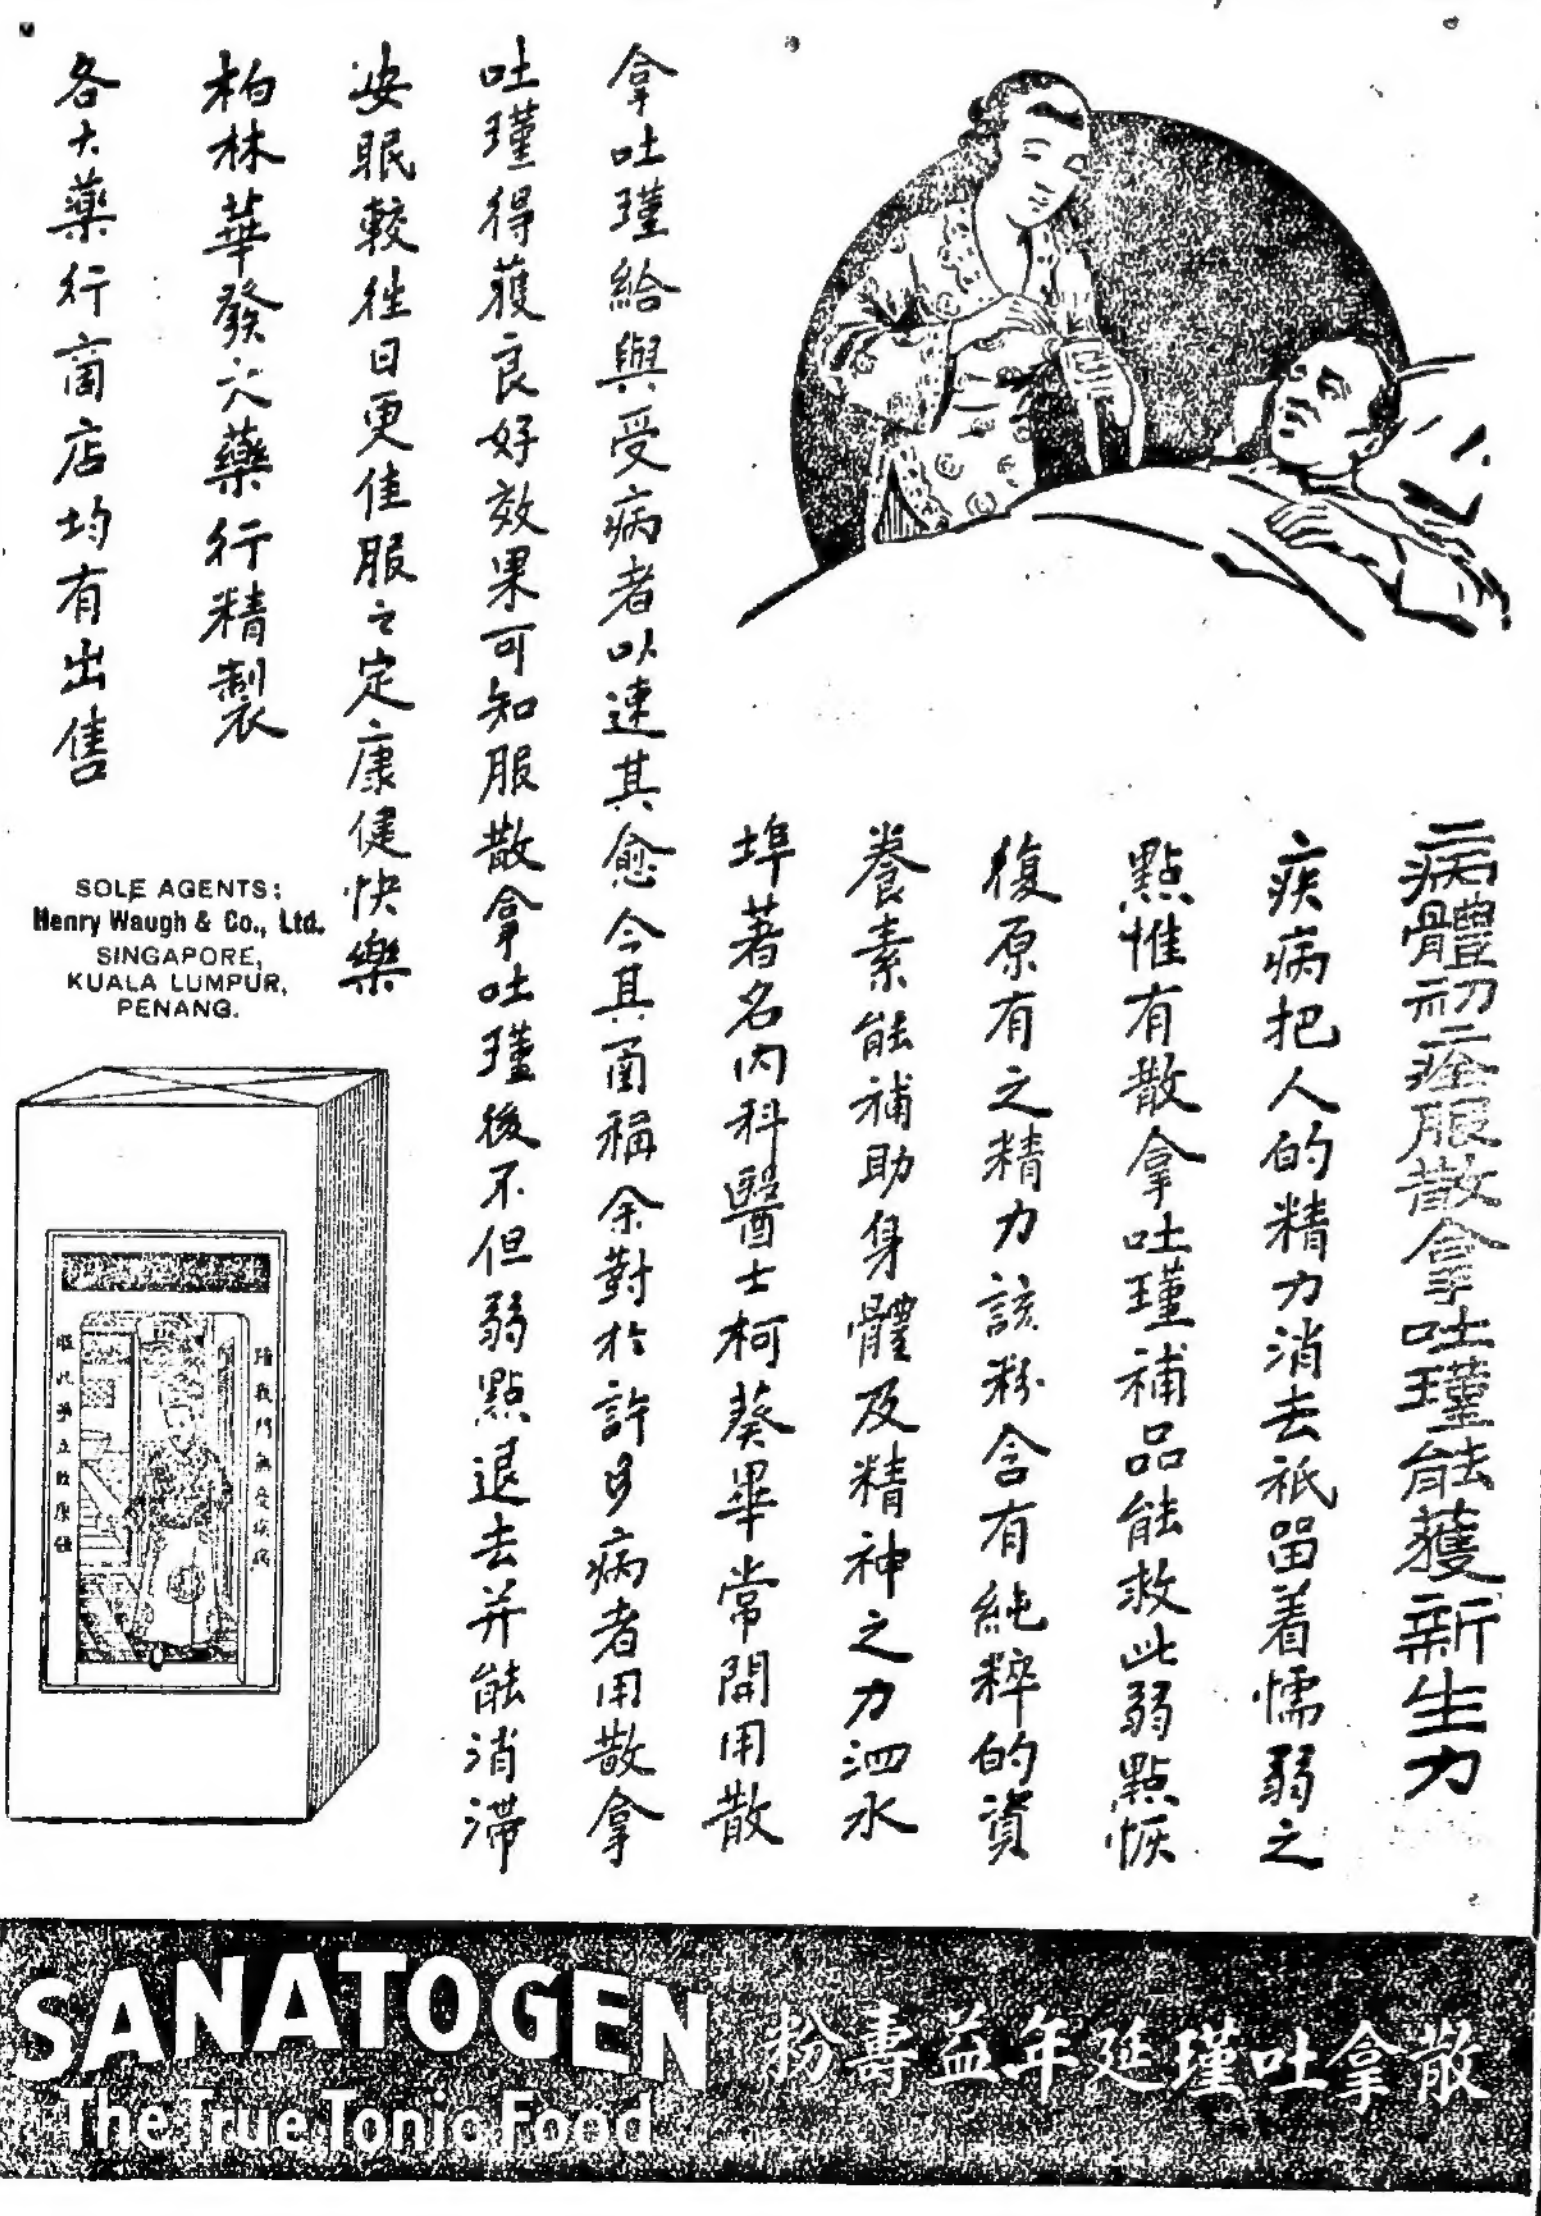 病體初痊服散拿吐瑾能獲新生力
疾病把人的精力消去祇畱着懦弱之
點惟有散拿吐瑾補品能救此弱點恢
復原有之精力該粉含有純粹的資
養素能補助身體及精神之力泗水
埠著名內科醫士柯葵畢常開用散
拿吐瑾給與受病者以速其愈今其函稱余對於許多病者用散拿
吐瑾得獲良好效果可知服散拿吐瑾後不但弱點退去并能消滯
安眠較往日更佳服之定康健快樂
柏林華發大藥行精製
各大藥行商店均有出售
SOLE AGENTS:
Henry Waugh & Co., Ltd.
SINGAPORE,
KUALA LUMPUR,
PENANG.
SANATOGEN
The True Tonic Food
散拿吐瑾延年益壽粉